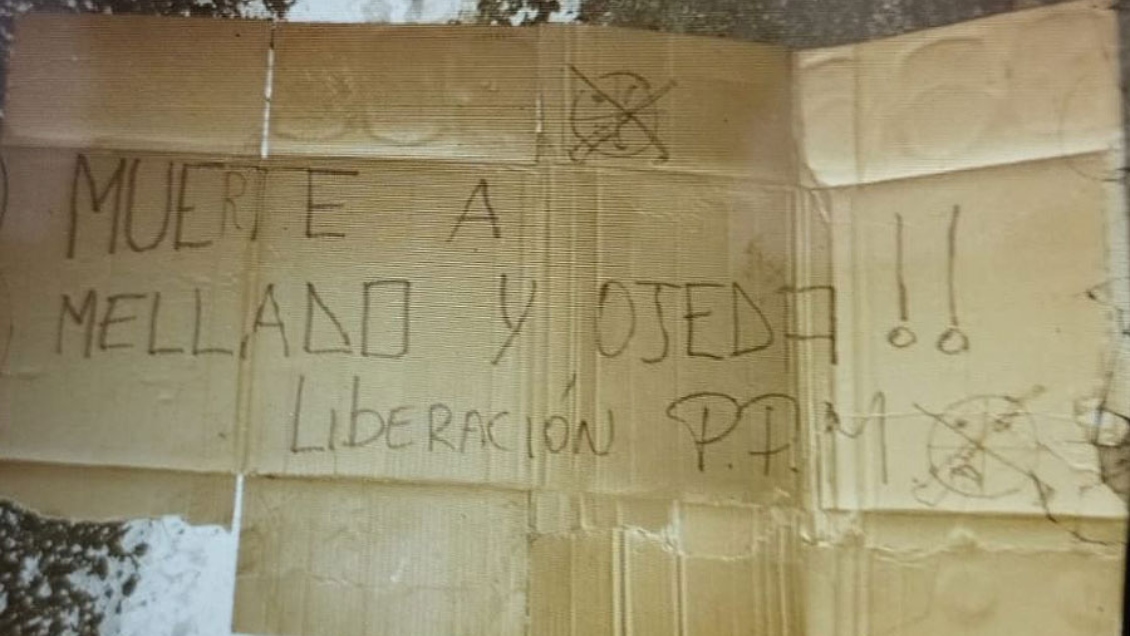 MUERTE A
MELLADO Y OJEDA !!
LIBERACIÓN P.P.M